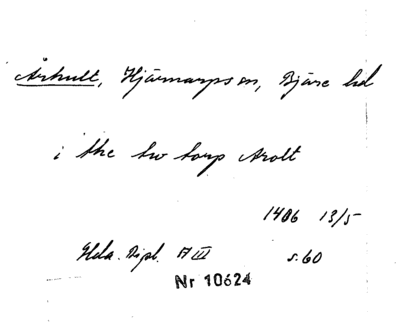 Århult, Hjärnarps sn, Bjäre hd
i the tw torp Arolt
1406 13/5
Dipl. A III s. 60
Nr 10624